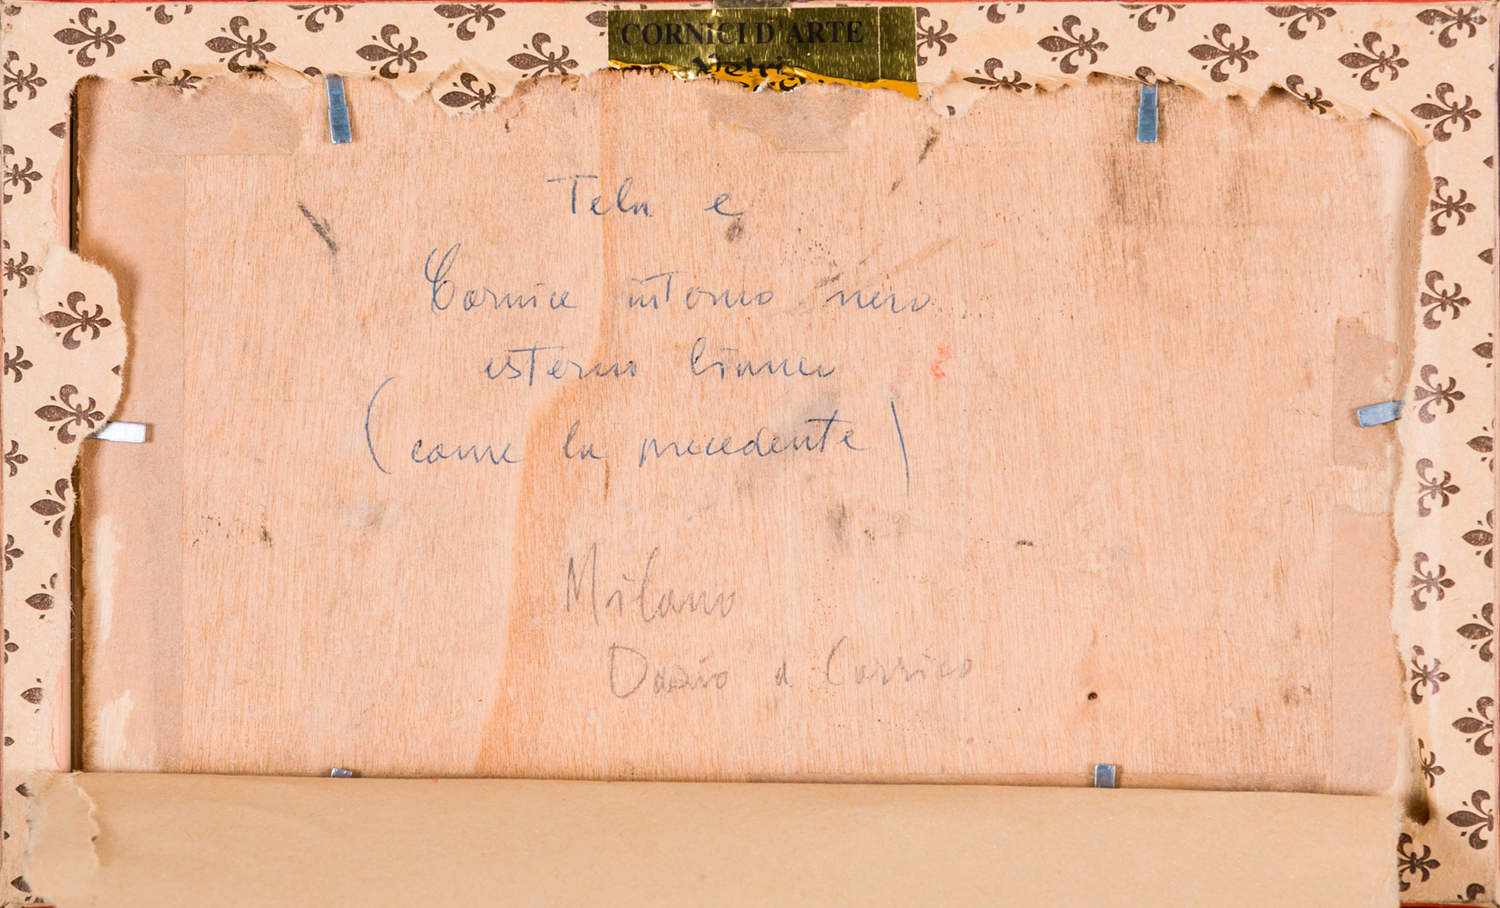 CORNICI D'ARTE
Vetri
Tela e
Cornice interno nero
esterno bianco
(come la precedente)
Milano
Dazio a Corrico